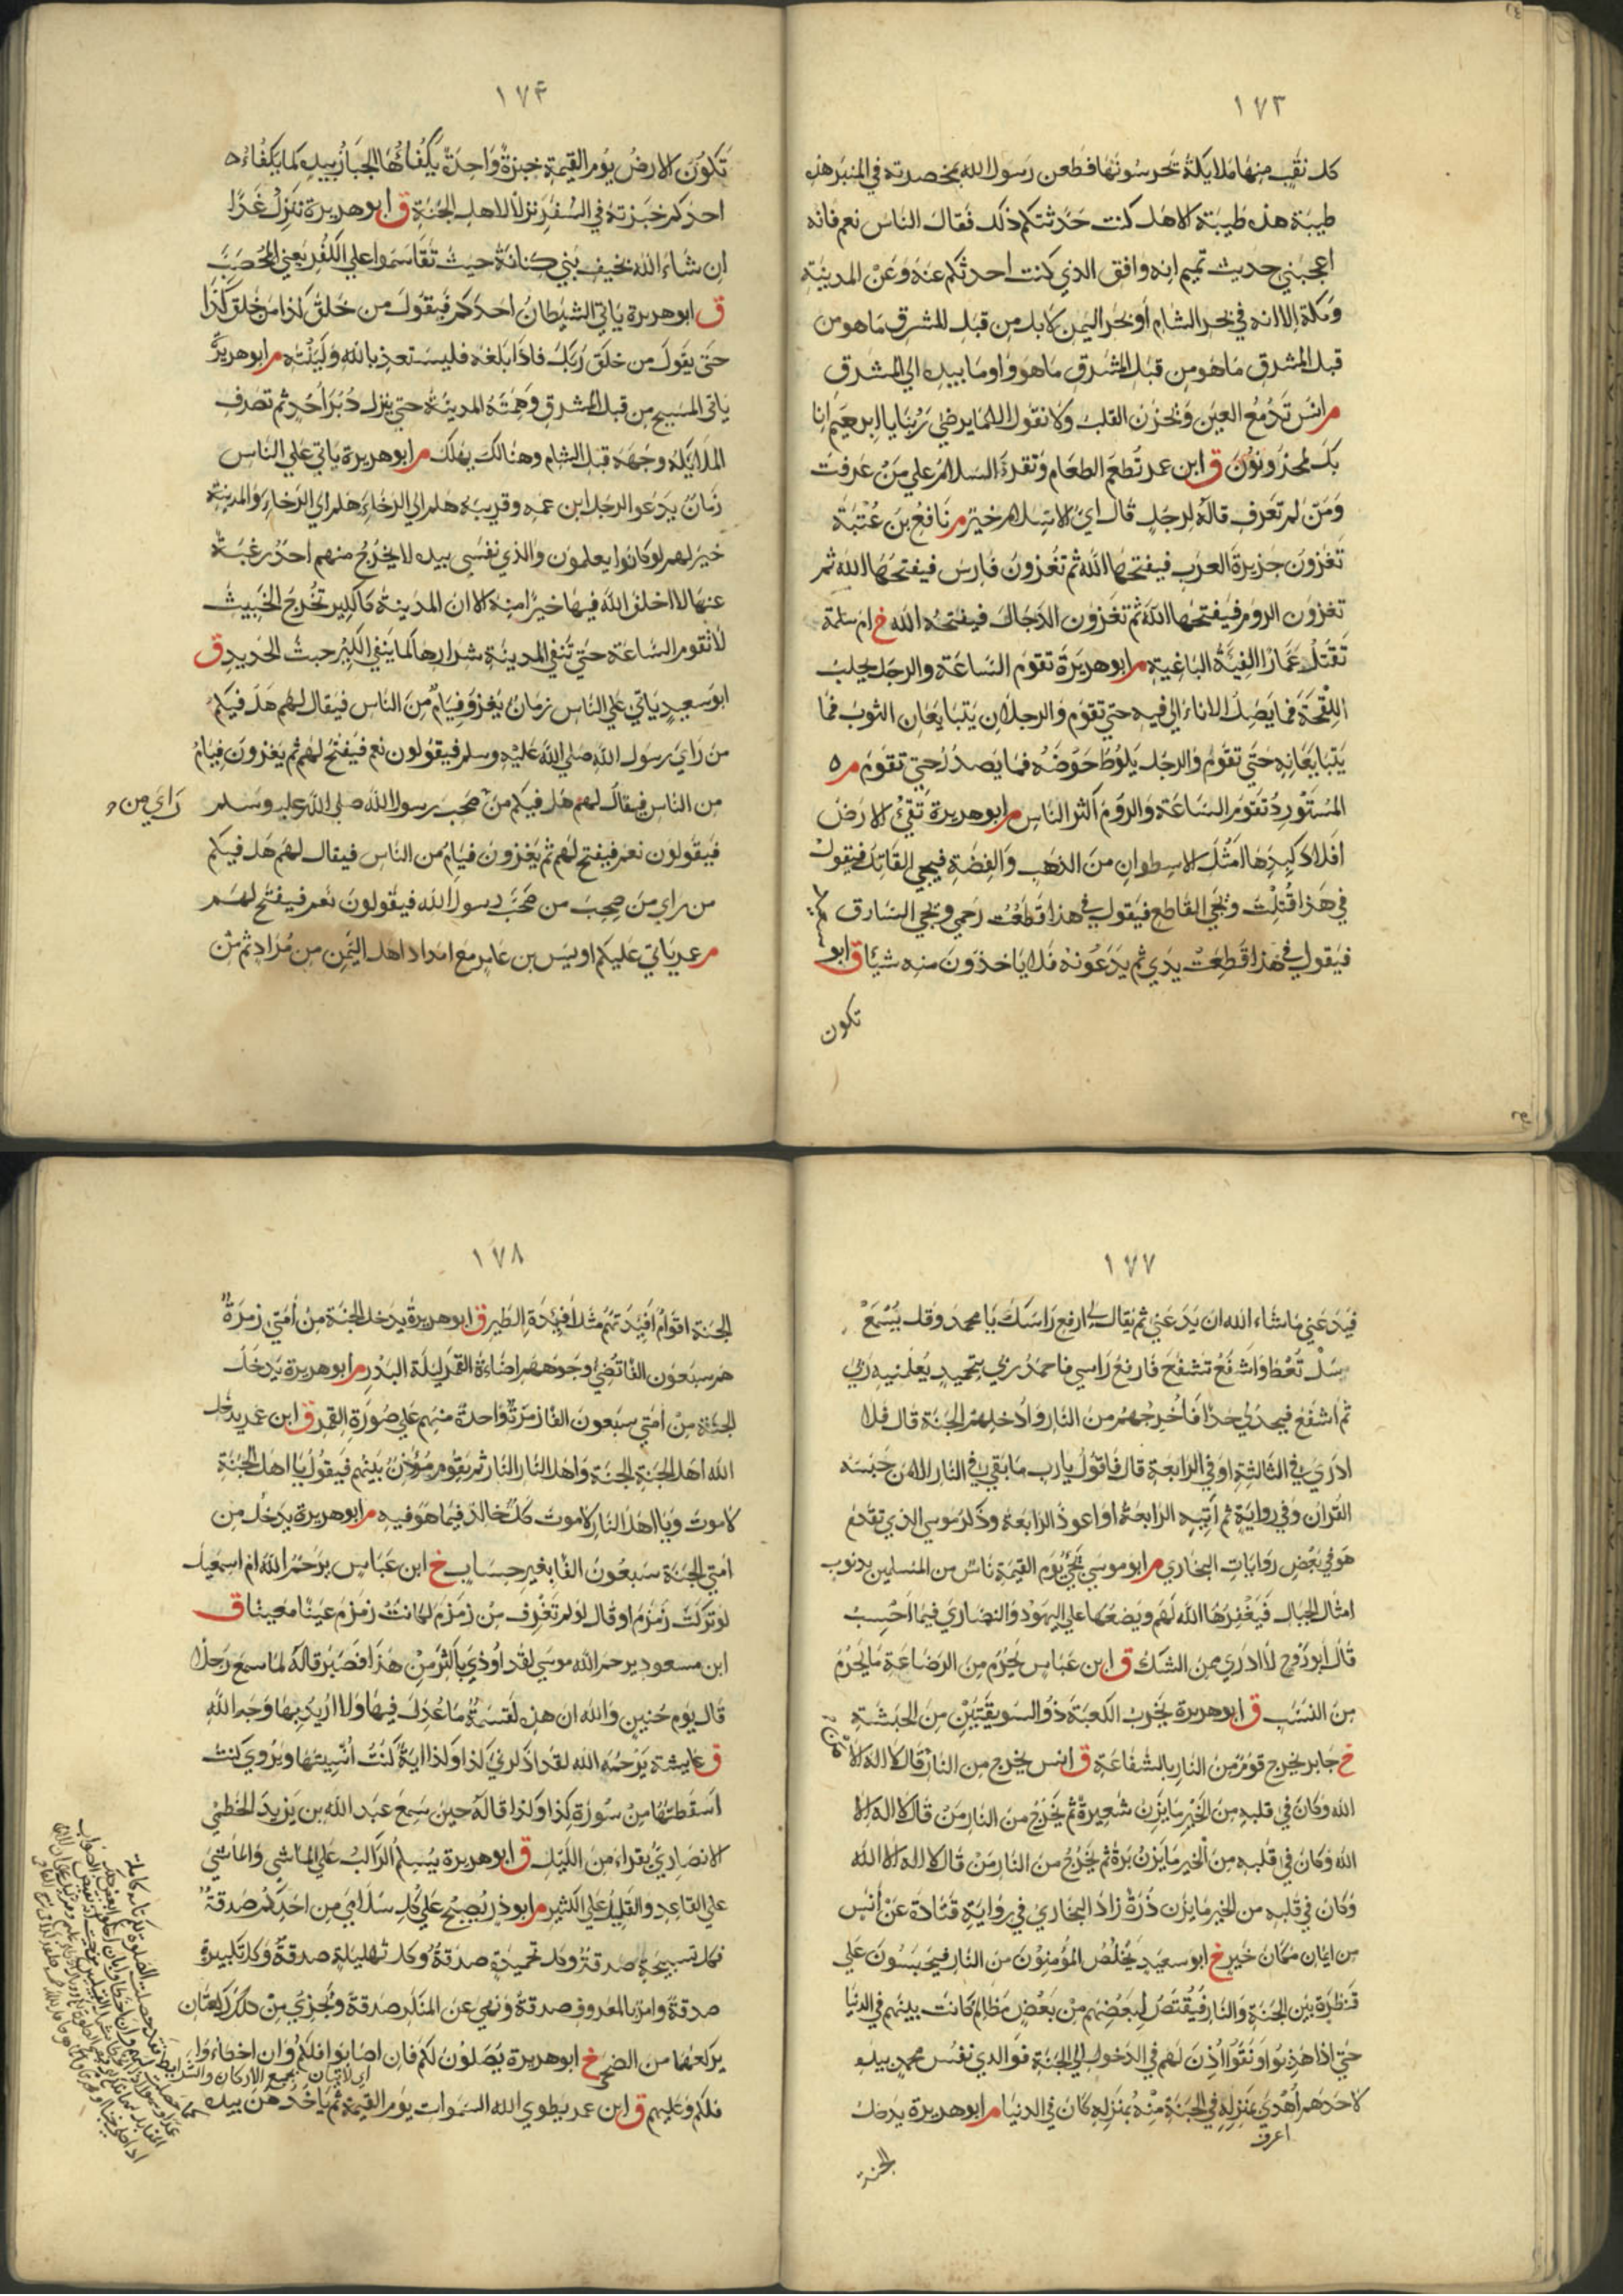 ١٧٣
كل نقب منها ملايكة تحرسونها فطعن رسول الله بمخصرته في المنبر هذه
طيبة هذه طيبة الا هل كنت حدثتكم ذلك فقال الناس نعم فانه
اعجبني حديث تميم انه وافق الذي كنت احدثكم عنه وعن المدينة
ومكة الا انه في بحر الشام او بحر اليمن لا بل من قبل المشرق ما هو من
قبل المشرق ما هو من قبل المشرق ما هو واوما بيده الي المشرق
م انس تدمع العين ويحزن القلب ولا نقول الا ما يرضي ربنا يا ابرهيم انا
بك لمحزونون ق ابن عمر تطعم الطعام وتقرء السلام علي من عرفت
ومن لم تعرف قاله لرجل قال اي الاسلام خير م نافع بن عتبة
تغزون جزيرة العرب فيفتحها الله ثم تغزون فارس فيفتحها الله ثم
تغزون الروم فيفتحها الله ثم تغزون الدجال فيفتحه الله خ ام سلمة
تقتل عمارا الفئة الباغية م ابو هريرة تقوم الساعة والرجل يحلب
اللقحة فما يصل الاناء الي فيه حتي تقوم والرجلان يتبايعان الثوب فما
يتبايعانه حتي تقوم والرجل يلوط حوضه فما يصدر حتي تقوم م ه
المستورد تقوم الساعة والروم اكثر الناس م ابو هريرة تقئ الارض
افلاذ كبدها امثال الاسطوان من الذهب والفضة فيجي القاتل فيقول
في هذا قتلت ويجي القاطع فيقول في هذا قطعت رحمي ويجي السارق
فيقول في هذا قطعت يدي ثم يدعونه فلا ياخذون منه شيئا ق ابو
تكون
١٧٤
تكون الارض يوم القيمة خبزة واحدة يكفاها الجبار بيده كما يكفاء ه
احدكم خبزته في السفر نزلا لاهل الجنة ق ابو هريرة ننزل غدا
ان شاء الله بخيف بني كنانة حيث تقاسموا علي الكفر يعني المحصب
ق ابو هريرة ياتي الشيطان احدكم فيقول من خلق كذا من خلق كذا
حتى يقول من خلق ربك فاذا بلغه فليستعذ بالله ولينته م ابو هريرة
ياتي المسيح من قبل المشرق وهمته المدينة حتي ينزل دبر احد ثم تصرف
الملايكة وجهه قبل الشام وهنالك يهلك م ابو هريرة ياتي علي الناس
زمان يدعو الرجل ابن عمه وقريبه هلم الي الرخاء هلم الي الرخاء والمدينة
خير لهم لو كانوا يعلمون والذي نفسي بيده لا يخرج منهم احد رغبة
عنها الا اخلف الله فيها خيرا منه الا ان المدينة كالكير تخرج الخبيث
لا تقوم الساعة حتي تنفي المدينة شرارها كما ينفي الكير خبث الحديد ق
ابو سعيد ياتي علي الناس زمان يغزو فيام من الناس فيقال لهم هل فيكم
من راي رسول الله صلي الله عليه وسلم فيقولون نعم فيفتح لهم ثم يغزون فيام
من الناس فيقال لهم هل فيكم من صحب رسول الله صلي الله عليه وسلم
راي من
فيقولون نعم فيفتح لهم ثم يغزون فيام من الناس فيقال لهم هل فيكم
من راي من صحب من صحب رسول الله فيقولون نعم فيفتح لهم
م عمر ياتي عليكم اويس بن عامر مع امداد اهل اليمن من مراد ثم من
١٧٧
فيدعني ما شاء الله ان يدعني ثم يقال لي ارفع راسك يا محمد وقل يسمع
سل تعط واشفع تشفع فارفع راسي فاحمد ربي بتحميد يعلمنيه ربي
ثم اشفع فيحد لي حدا فاخرجهم من النار وادخلهم الجنة قال فلا
ادري في الثالثة او في الرابعة قال فاقول يا رب ما بقي في النار الا من حبسه
القران وفي رواية ثم آتيه الرابعة او اعود الرابعة وذكر موسي الذي تقدم
هو في بعض روايات البخاري م ابو موسي يجئ يوم القيمة ناس من المسلمين بذنوب
امثال الجبال فيغفرها الله لهم ويضعها علي اليهود والنصاري فيما احسب
قال ابو روح لا ادري ممن الشك ق ابن عباس يحرم من الرضاعة ما يحرم
من النسب ق ابو هريرة يخرب الكعبة ذو السويقتين من الحبشة
خ جابر يخرج قوم من النار بالشفاعة ق انس يخرج من النار من قال لا اله الا
الله وكان في قلبه من الخير ما يزن شعيرة ثم يخرج من النار من قال لا اله الا
الله وكان في قلبه من الخير ما يزن برة ثم يخرج من النار من قال لا اله الا الله
وكان في قلبه من الخير ما يزن ذرة زاد البخاري في رواية قتادة عن انس
من ايمان مكان خير خ ابو سعيد يخلص المؤمنون من النار فيحبسون علي
قنطرة بين الجنة والنار فيقتص لبعضهم من بعض مظالم كانت بينهم في الدنيا
حتي اذا هذبوا ونقوا اذن لهم في الدخول الي الجنة فوالذي نفس محمد بيده
لاحدهم اهدي بمنزله في الجنة منه بمنزله كان في الدنيا م ابو هريرة يدخل
اعرف
الجنة
١٧٨
الجنة اقوام افئدتهم مثل افئدة الطير ق ابو هريرة يدخل الجنة من امتي زمرة
هم سبعون الفا تضئ وجوههم اضاءة القمر ليلة البدر م ابو هريرة يدخل
الجنة من امتي سبعون الفا زمرة واحدة منهم علي صورة القمر ق ابن عمر يدخل
الله اهل الجنة الجنة واهل النار النار ثم يقوم مؤذن بينهم فيقول يا اهل الجنة
لا موت ويا اهل النار لا موت كل خالد فيما هو فيه م ابو هريرة يدخل من
امتي الجنة سبعون الفا بغير حساب خ ابن عباس يرحم الله ام اسمعيل
لو تركت زمزم او قال لو لم تغرف من زمزم لكانت زمزم عينا معينا ق
ابن مسعود يرحم الله موسي لقد اوذي باكثر من هذا فصبر قاله لما سمع رجلا
قال يوم حنين والله ان هذه لقسمة ما عدل فيها ولا اريد بها وجه الله
ق عايشة يرحمه الله لقد اذكرني كذا وكذا اية كنت انسيتها ويروي كنت
اسقطتها من سورة كذا وكذا قاله حين سمع عبد الله بن يزيد الخطمي
الانصاري يقراء من الليل ق ابو هريرة يسلم الراكب علي الماشي والماشي
علي القاعد والقليل علي الكثير م ابو ذر يصبح علي كل سلامي من احدكم صدقة
فكل تسبيحة صدقة وكل تحميدة صدقة وكل تهليلة صدقة وكل تكبيرة
صدقة وامر بالمعروف صدقة ونهي عن المنكر صدقة ويجزي من ذلك ركعتان
يركعهما من الضحي خ ابو هريرة يصلون لكم فان اصابوا فلكم وان اخطاوا
فلكم وعليهم ق ابن عمر يطوي الله السموات يوم القيمة ثم ياخذهن بيده